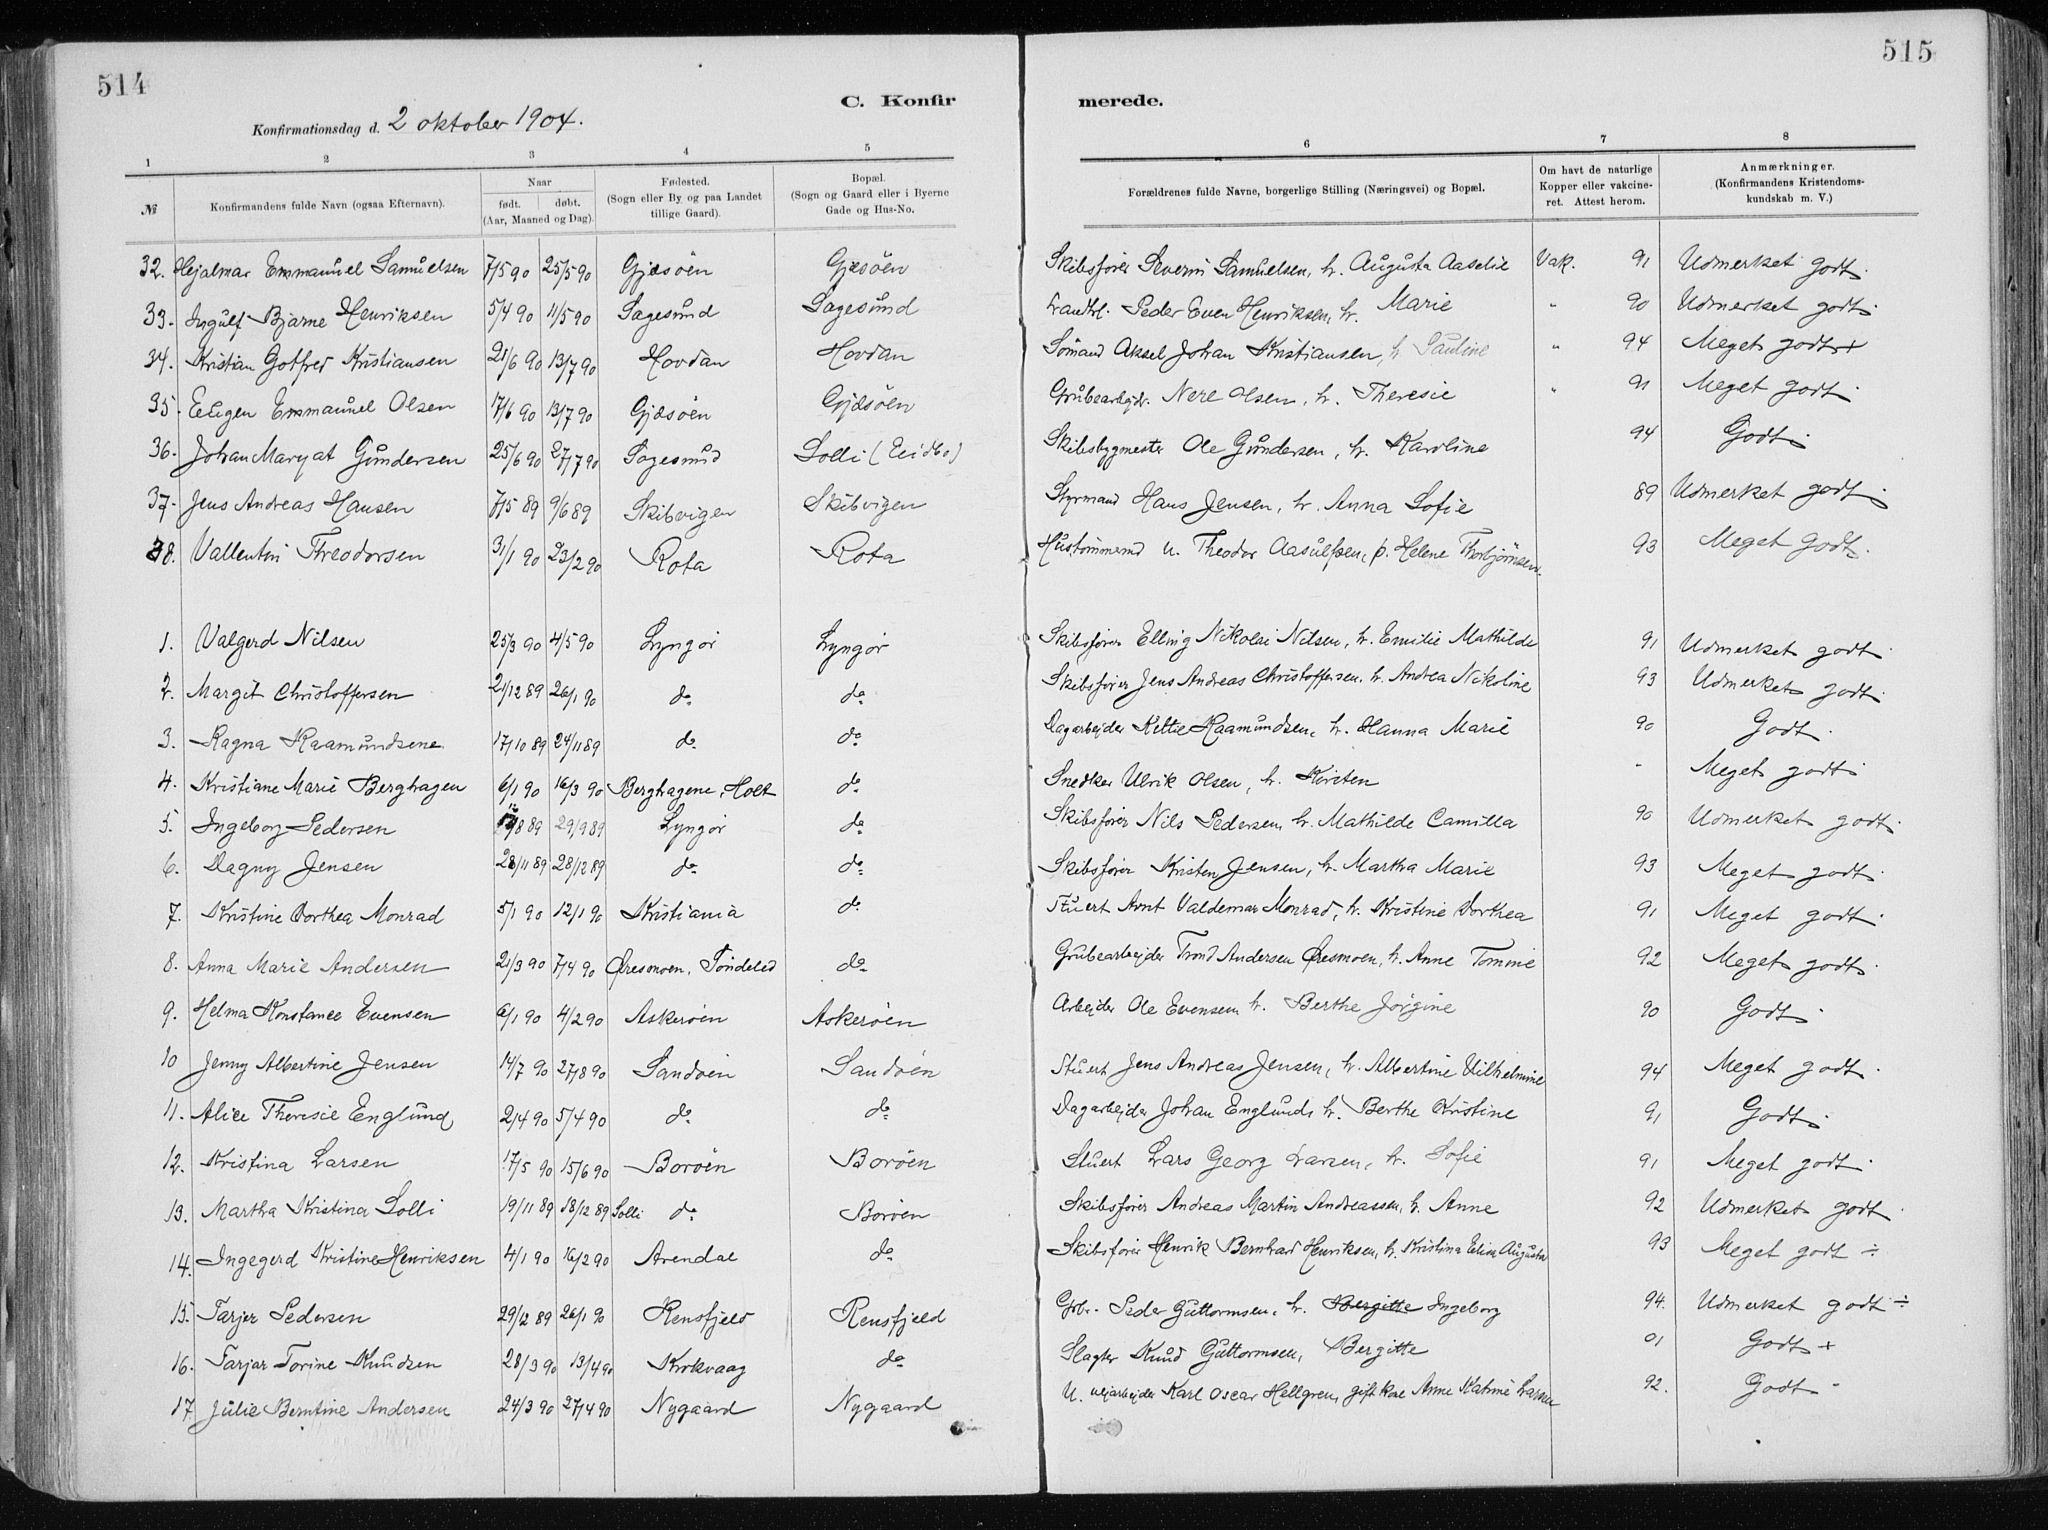 514
515
C. Konfir merede.
Konfirmationsdag d. 2 oktober 1904.
1 2 3 4 5 6 7 8
№ Konfirmandens fulde Navn (ogsaa Efternavn). Naar født. døbt. (Aar, Maaned og Dag). Fødested. (Sogn eller By og paa Landet tillige Gaard). Bopæl. (Sogn og Gaard eller i Byerne Gade og Hus-No. Forældrenes fulde Navne, borgerlige Stilling (Næringsvei) og Bopæl. Om havt de naturlige Kopper eller vakcineret. Attest herom. Anmærkninger. (Konfirmandens Kristendomskundskab m. V.)
32. Hejalmar Emmanuel Samuelsen 7/5 90 25/5 90 Gjæsöen Gjæsöen Skibsfører Severin Samuelsen, h. Augusta Aaselie Vak. 91 Udmerket godt.
33. Ingulf Bjarne Henriksen 5/4 90 11/5 90 Sagesund Sagesund Landhl. Peder Even Henriksen, h. Marie " 90 Udmerket godt.
34. Kristian Gotfred Kristiansen 21/6 90 13/7 90 Hovdan Hovdan Sömand Aksel Johan Kristiansen, h. Pauline " 94 Meget godt +
35. Eeugen Emmanuel Olsen 17/6 90 13/7 90 Gjæsöen Gjæsöen Grubearbejdr. Nere Olsen, h. Theresie " 91 Meget godt.
36. Johan Maryat Gundersen 25/6 90 27/7 90 Sagesund Solli (Eidbo) Skibsbygmester Ole Gundersen, h. Karoline 94 Godt.
37. Jens Andreas Hansen 7/5 89 9/6 89 Skibvigen Skibvigen Styrmand Hans Jensen, h. Anna Sofie 89 Udmerket godt.
38. Vallentin Threodorsen 31/1 90 23/2 90 Rota Rota Hustømmermd u. Theodor Aasulfsen, p. Helene Thorbjörnsen. 93 Meget godt.
1. Valgerd Nilsen 25/3 90 4/5 90 Lyngör Lyngör Skibsfører Elling Nikolai Nilsen, h. Emilie Mathilde 91 Udmerket godt.
2. Margit Christoffersen 21/12 89 26/1 90 do do Skibsfører Jens Andreas Christoffersen, h. Andrea Nikoline 93 Udmerket godt.
3. Ragna Haamundsene 17/10 89 24/11 89 do do Dagarbejder Kittie Haamundsen, h. Hanna Marie 90 Godt.
4. Kristiane Marie Berghagen 6/1 90 16/3 90 Berghagene, Holt do Snedker Ulrik Olsen, h. Kirsten - Meget godt.
5. Ingeborg Pedersen 8 89 29/9 89 Lyngör do Skibsfører Nils Pedersen, h. Mathilde Camilla 90 Udmerket godt.
6. Dagny Jensen 28/11 89 28/12 89 do do Skibsfører Kristen Jensen, h. Martha Marie 93 Meget godt.
7. Kristine Dorthea Monrad 5/1 90 12/1 90 Kristiania do Stuert Arnt Valdemar Monrad, h. Kristine Dorthea 91 Meget godt.
8. Anna Marie Andersen 21/3 90 7/4 90 Øresmoen, Söndeled do Grubearbejder Trond Andersen Øresmoen, h. Anne Tomine 92 Meget godt.
9. Helma Konstance Evensen 6/1 90 4/2 90 Askeröen Askeröen Arbejder Ole Evensen, h. Berthe Jörgine 90 Godt.
10 Jenny Albertine Jensen 14/7 90 27/8 90 Sandöen Sandöen Stuert Jens Andreas Jensen, h. Albertine Vilhelmine 94 Meget godt.
11. Alice Theresie Englund 2/4 90 5/4 90 do do Dagarbejder Johan Englund, h. Berthe Kristine 91 Godt.
12. Kristina Larsen 17/5 90 15/6 90 Boröen Boröen Stuert Lars Georg Larsen, h. Sofie 91 Meget godt.
13. Martha Kristina Solli 19/11 89 18/12 89 Solli do Boröen Skibsfører Andreas Martin Andreassen, h. Anne 92 Udmerket godt.
14. Ingegerd Kristine Henriksen 4/1 90 16/2 90 Arendal do Skibsfører Henrik Bernhard Henriksen, h. Kristina Elin Augusta 93 Meget godt ÷
15. Tarjer Pedersen 29/12 89 26/1 90 Rensfjeld Rensfjeld Gbr. Peder Guttormsen, h. Bergitte Ingeborg 94. Udmerket godt ÷
16. Tarjar Torine Knudsen 28/3 90 13/4 90 Krokvaag do Slagter Knud Guttormsen, Bergitte 01 Godt +
17 Julie Berntine Andersen 24/3 90 27/4 90 Nygaard Nygaard U. vejarbejder Karl Oscar Hellgren, gift Kone Anne Katrine Larsen 92. Godt -